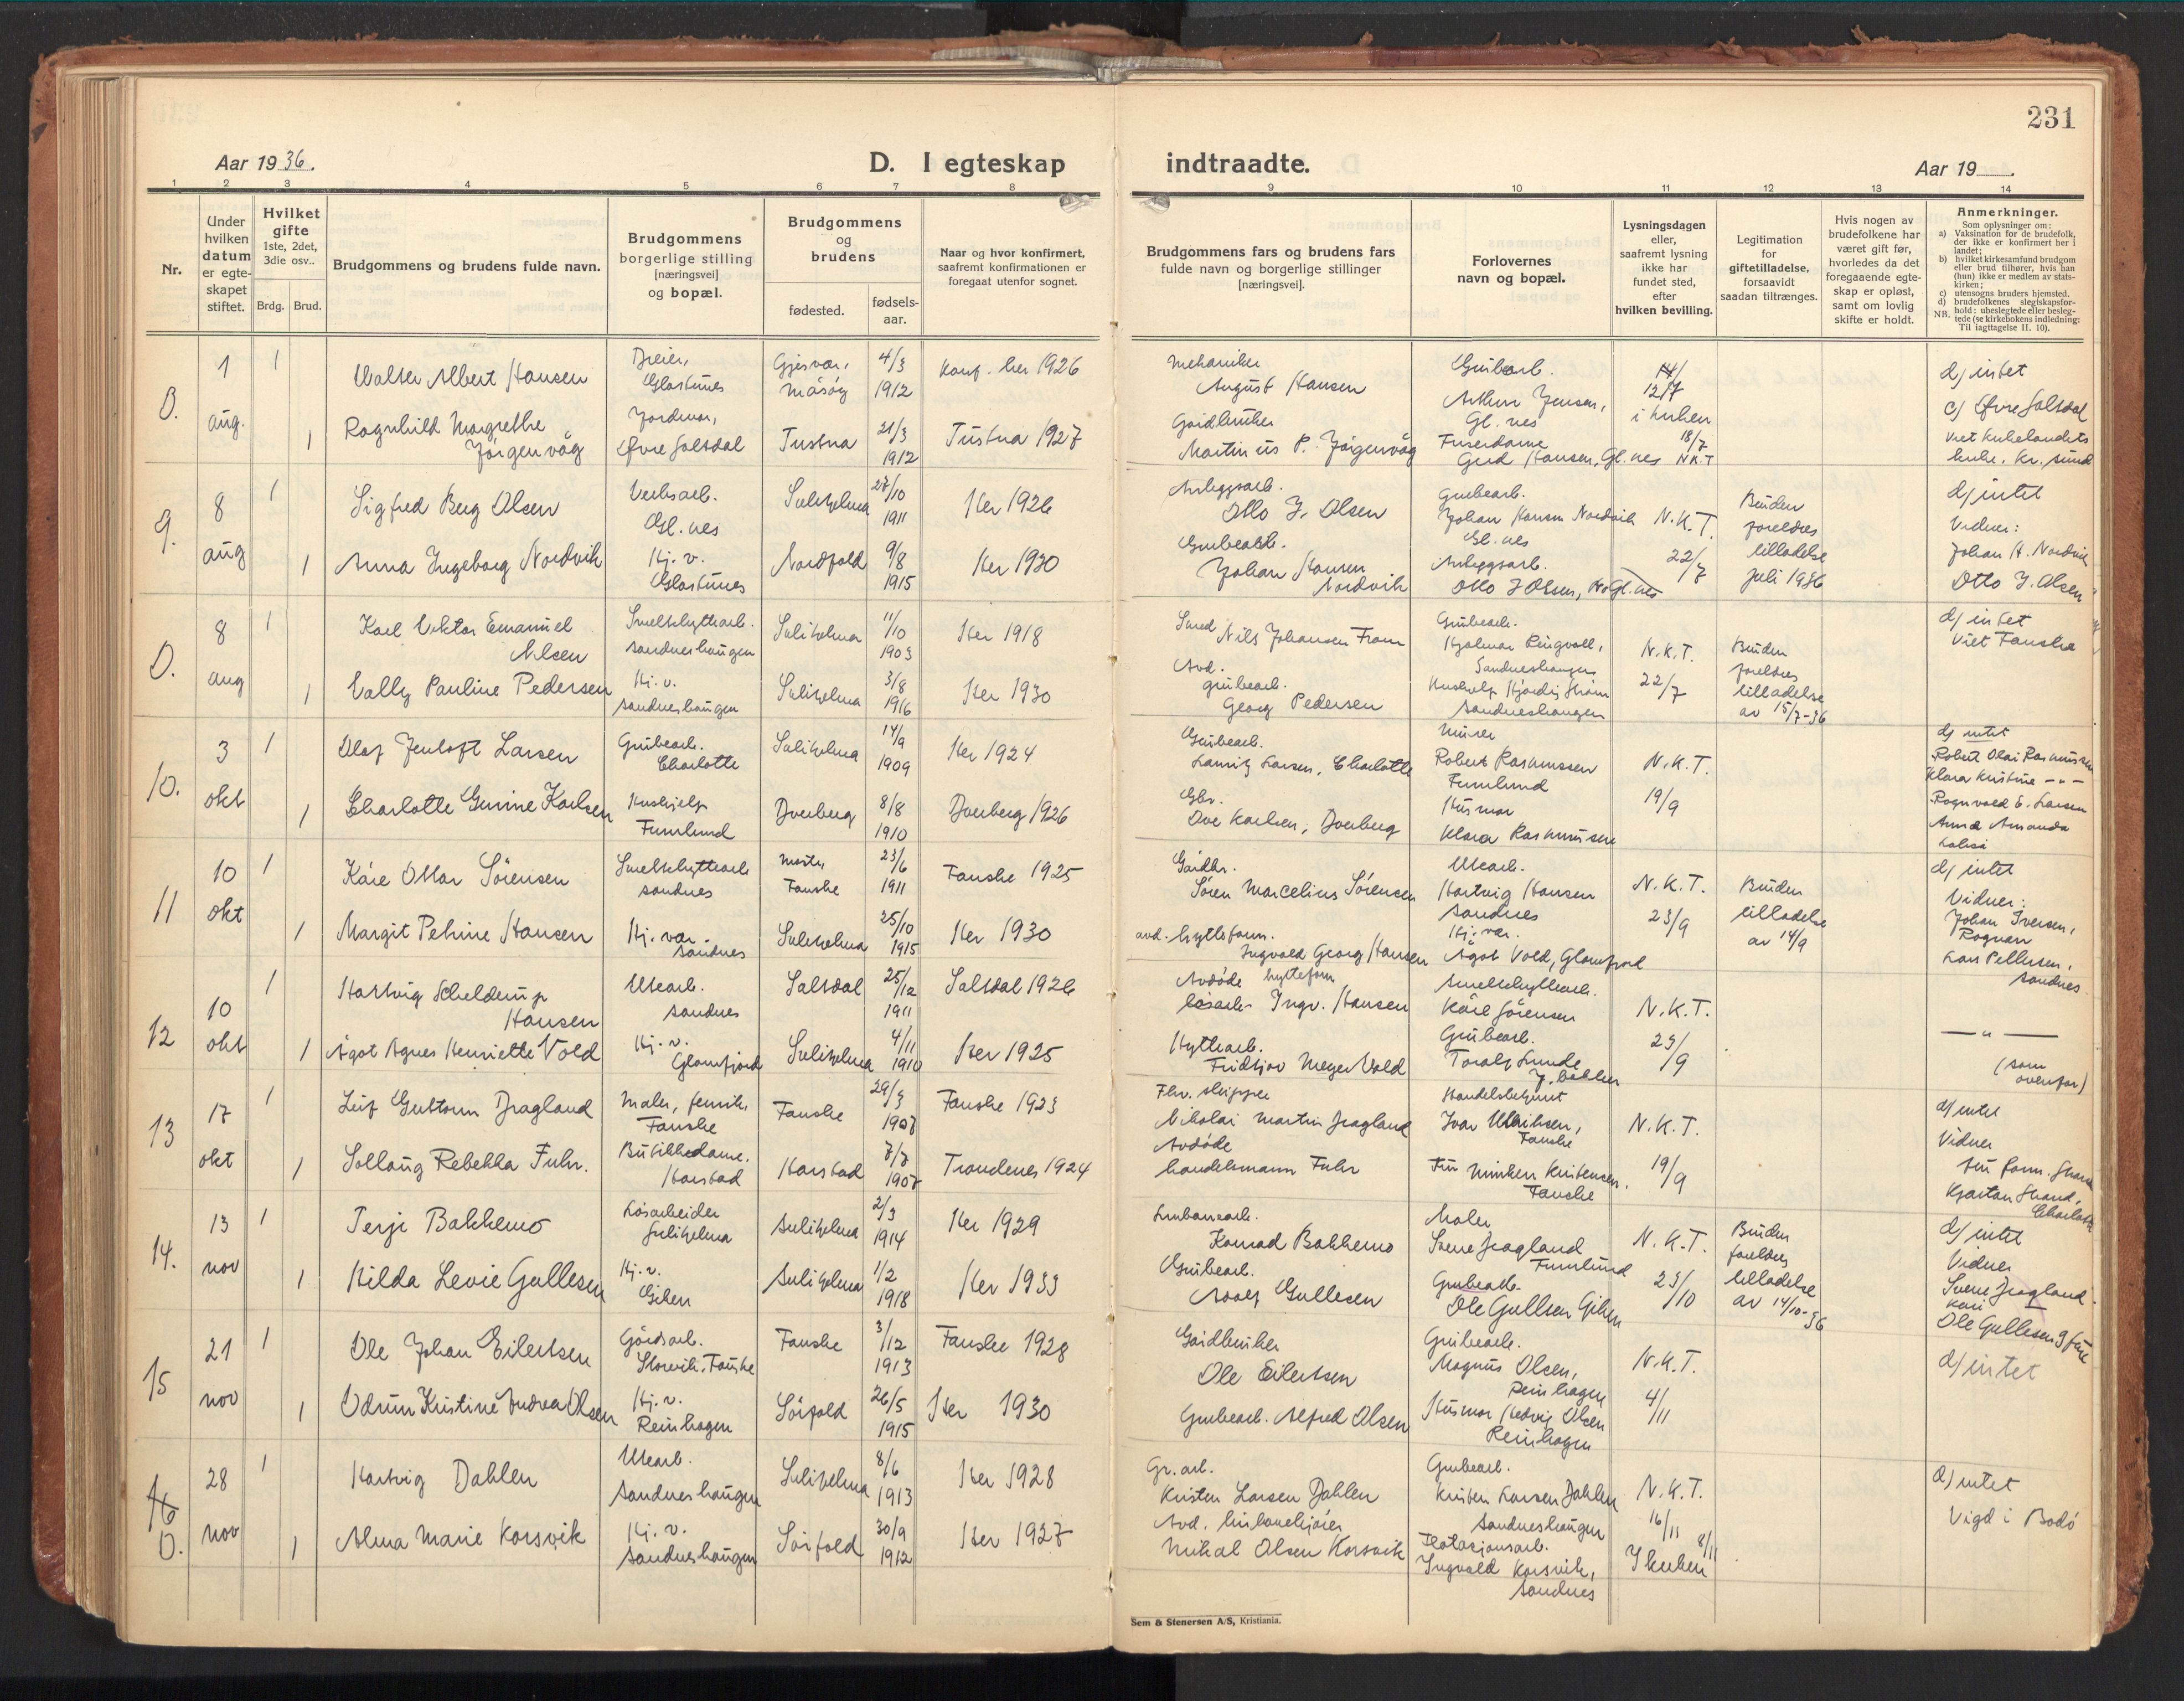 231
Aar 1936.
D. I egteskap
indtraadte.
Aar 19
1 2 3 4 5 6 7 8 9 10 11 12 13 14
Nr.
Under hvilken datum er egteskapet stiftet.
Hvilket gifte 1ste, 2det, 3die osv..
Brdg. Brud.
Brudgommens og brudens fulde navn.
Brudgommens borgerlige stilling [næringsvei] og bopæl.
Brudgommens og brudens
fødested.
fødsels-aar.
Naar og hvor konfirmert, saafremt konfirmationen er foregaat utenfor sognet.
Brudgommens fars og brudens fars fulde navn og borgerlige stillinger [næringsvei].
Forlovernes navn og bopæl.
Lysningsdagen eller, saafremt lysning ikke har fundet sted, efter hvilken bevilling.
Legitimation for giftetilladelse, forsaavidt saadan tiltrænges.
Hvis nogen av brudefolkene har været gift før, hvorledes da det foregaaende egteskap er opløst, samt om lovlig skifte er holdt.
Anmerkninger.
Som oplysninger om:
a) Vaksination for de brudefolk, der ikke er konfirmert her i landet;
b) hvilket kirkesamfund brudgom eller brud tilhører, hvis han (hun) ikke er medlem av statskirken;
c) utensogns bruders hjemsted.
d) brudefolkenes slegtskapsforhold: ubeslegtede eller beslegtede (se kirkebokens indledning: Til iagttagelse II. 10).
NB.
1 aug. 1 Walter Albert Hansen
Glastunes
Måsøy 4/3 1912 Konf. her 1926
Mekaniker August Hansen
Grubearb. Arthur Jensen, Gl. nes
12/7 i kirken
d) intet
1 Ragnhild Margrethe Jörgenvåg
Øvre Saltdal Tustna 21/3 1912 Tustna 1927
Gårdbruker Martinus P. Jörgenvåg
Gerd Hansen, Gl. nes 18/7 N.K.T
c) Øvre Saltdal
9. 8 aug 1 Sigfred Berg Olsen
Verksarb. Gl. nes Sulitjelma 27/10 1911 Her 1926
Anleggsarb. Otto J. Olsen
Grubearb. Johan Hansen Nordvik Gl. nes
N.K.T. 22/7
Bruden foreldres tilladelse juli 1936
d) intet Vidner: Johan H. Nordvik Otto J. Olsen
1 Anna Ingeborg Nordvik
Hj. v. Glastunes Nordfold 9/8 1915 Her 1930
Grubearb. Johan Hansen Nordvik
Anleggsarb. Otto J Olsen, Gl. nes
8 aug 1 Karl Viktor Emanuel Nilsen
Smeltehyttearb. Sandneshaugen Sulitjelma 11/10 1903 Her 1918
Smed Nils Johansen
Grubearb. Hjalmar Ringvoll, Sandneshaugen
N.K.T. 22/7
Bruden foreldres tilladelse av 15/7-36
d) intet Viet Fauske
1 Vally Pauline Pedersen
Hj. v. Sandneshaugen Sulitjelma 3/8 1916 Her 1930
Avd. grubearb. Georg Pedersen
Sandneshaugen
10. 3 okt 1 Olaf Jentoft Larsen
Grubearb. Charlotte Sulitjelma 14/9 1909 Her 1924
Grubearb. Lauritz Larsen, Charlotte
Murer Robert Rasmussen Furulund
N.K.T. 19/9
d) intet Robert Olai Rasmussen Klara Kristine - " - Ragnvald E. Larsen Anna Amanda
1 Charlotte Gunine Karlsen
Hushjelp Furulund Dverberg 8/8 1910 Dverberg 1926
Gbr. Ove Karlsen, Dverberg
Husmor Klara Rasmussen
11 10 okt 1 Kåre Ottar Sörensen
Smeltehyttearb. Sandnes Fauske 23/6 1911 Fauske 1925
Gårdbr. Sören Marcelius Sörensen
Utearb. Hartvig Hansen Sandnes
N.K.T. 23/9
Bruden tilladelse av 14/9
d) intet Vidner: Johan Iversen, Rognan Lars Pettersen, Sandnes
1 Margit Petrine Hansen
Hj. vær. Sandnes Sulitjelma 25/10 1915 Her 1930
avd. hytteform. Ingvald Georg Hansen
Hj. vær. Ågot Vold, Glomfjord
12 10 okt 1 Hartvig Schelderup Hansen
Utearb. Sandnes Saltdal 25/12 1911 Saltdal 1926
Avdöde hytteform Ingv. Hansen
Smeltehyttearb. Kåre Sörensen
N.K.T. 23/9
— " — (som ovenfor)
1 Ågot Agnes Henriette Vold
Hj. v. Glomfjord Sulitjelma 4/11 1910 Her 1925
Hyttearb. Fridtjov Meyer Vold
Grubearb. Toralf Lunde
13 17 okt 1 Leif Guttorm Dragland
Maler, Fauske Fauske 29/3 1907 Fauske 1923
Fhv. skipper Nikolai Martin Dragland
Handelsbetjent Ivar Ulriksen, Fauske
N.K.T. 19/9
d) intet Vidner
1 Sollaug Rebekka Fuhr.
Butikkdame. Harstad Harstad 7/7 1907 Trondenes 1924
Avdöde handelsmann Fuhr
Fru Minken Kristensen. Fauske
Kjartan Strand, Charlotte
14. 13 nov 1 Terje Bakkemo
Lösarbeider Sulitjelma Sulitjelma 2/3 1914 Her 1929
Linbanearb. Konrad Bakkemo
Maler Sverre Dragland Furulund
N.K.T. 23/10
Bruden foreldres tilladelse av 14/10-36
d) intet Vidner Sverre Dragland. Ole Gullesen g
1 Hilda Levie Gullesen
Hj. v. Giken Sulitjelma 1/2 1918 Her 1933
Grubearb. Adolf Gullesen
Grubearb. Ole Gullesen Giken
15 21 nov 1 Ole Johan Eilertsen
Gårdsarb. Storvik, Fauske Fauske 3/12 1913 Fauske 1928
Gårdbruker Ole Eilertsen
Grubearb. Magnus Olsen, Reinhagen
N.K.T. 4/11
d) intet
1 Odrun Kristine Andrea Olsen
Hj. v. Reinhagen Sörfold 26/5 1915 Her 1930
Grubearb. Alfred Olsen
Husmor Hedvig Olsen Reinhagen
16 28 nov 1 Hartvig Dahlen
Utearb. Sandneshaugen Sulitjelma 8/6 1913 Her 1928
Gr. arb. Kristen Larsen Dahlen
Grubearb. Kristen Larsen Dahlen Sandneshaugen
N.K.T. 16/11
d) intet Vigd i Bodö
1 Alma Marie Korsvik
Hj. v. Sandneshaugen Sörfold 30/9 1912 Her 1927
Avd. linbanekjörer Mikal Olsen Korsvik
Flotasjonsarb. Ingvald Korsvik, Sandnes
8/11 I kirken
Sem & Stenersen A/S, Kristiania.